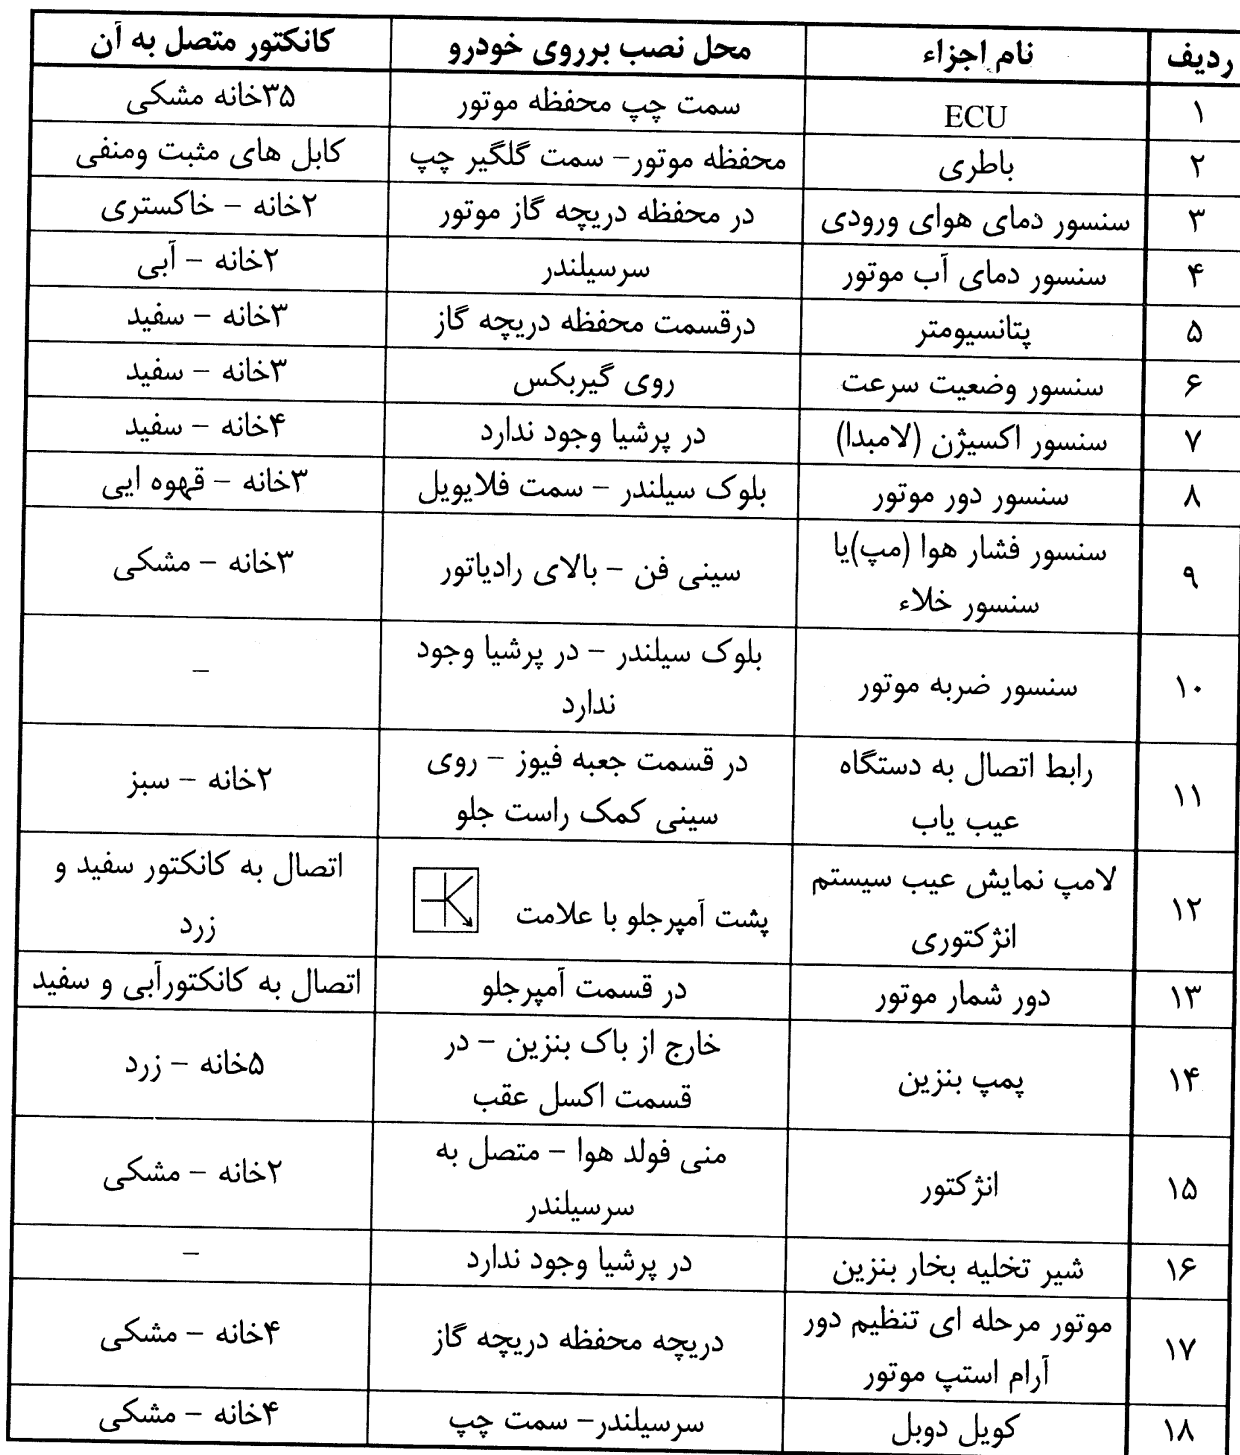 ردیف نام اجزاء محل نصب برروی خودرو کانکتور متصل به آن
۱ ECU سمت چپ محفظه موتور ۳۵خانه مشکی
۲ باطری محفظه موتور– سمت گلگیر چپ کابل های مثبت ومنفی
۳ سنسور دمای هوای ورودی در محفظه دریچه گاز موتور ۲خانه – خاکستری
۴ سنسور دمای آب موتور سرسیلندر ۲خانه – آبی
۵ پتانسیومتر درقسمت محفظه دریچه گاز ۳خانه – سفید
۶ سنسور وضعیت سرعت روی گیربکس ۳خانه – سفید
۷ سنسور اکسیژن (لامبدا) در پرشیا وجود ندارد ۴خانه – سفید
۸ سنسور دور موتور بلوک سیلندر – سمت فلایویل ۳خانه – قهوه ایی
۹ سنسور فشار هوا (مپ)یا
سنسور خلاء
سینی فن – بالای رادیاتور ۳خانه – مشکی
۱۰ سنسور ضربه موتور بلوک سیلندر – در پرشیا وجود
ندارد
–
۱۱ رابط اتصال به دستگاه
عیب یاب
در قسمت جعبه فیوز – روی
سینی کمک راست جلو
۲خانه – سبز
۱۲ لامپ نمایش عیب سیستم
انژکتوری
پشت آمپرجلو با علامت
اتصال به کانکتور سفید و
زرد
۱۳ دور شمار موتور در قسمت آمپرجلو اتصال به کانکتورآبی و سفید
۱۴ پمپ بنزین خارج از باک بنزین – در
قسمت اکسل عقب
۵خانه – زرد
۱۵ انژکتور منی فولد هوا – متصل به
سرسیلندر
۲خانه – مشکی
۱۶ شیر تخلیه بخار بنزین در پرشیا وجود ندارد –
۱۷ موتور مرحله ای تنظیم دور
آرام استپ موتور
دریچه محفظه دریچه گاز ۴خانه – مشکی
۱۸ کویل دوبل سرسیلندر– سمت چپ ۴خانه – مشکی